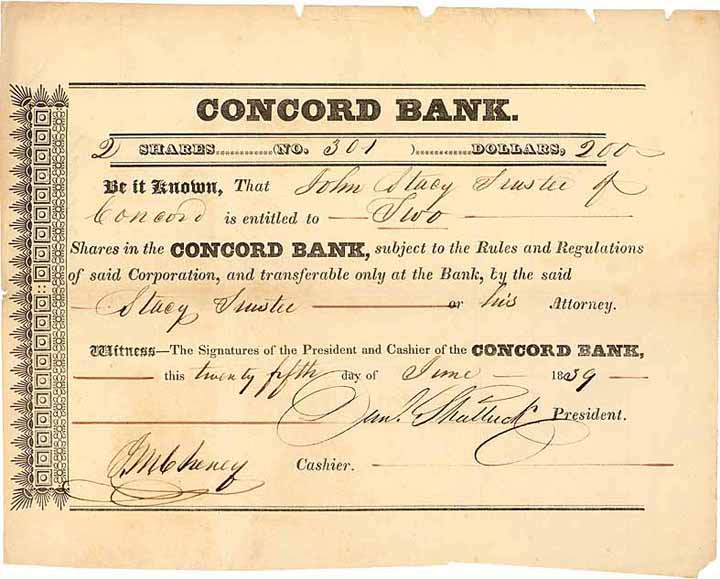 CONCORD BANK.
2 SHARES............(NO. 301 )............DOLLARS, 200
Be it Known, That John Stacy Trustee of
Concord is entitled to Two
Shares in the CONCORD BANK, subject to the Rules and Regulations
of said Corporation, and transferable only at the Bank, by the said
Stacy Trustee or his Attorney.
Witness—The Signatures of the President and Cashier of the CONCORD BANK,
this twenty fifth day of June 1839
Danl. Shattuck President.
J M Cheney Cashier.